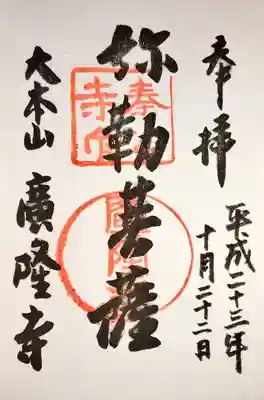 奉拝
平成二十三年
十月二十二日
弥勒菩薩
大本山
廣隆寺